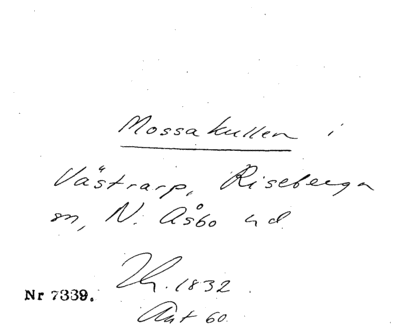 Mossakullen i
Västrarp, Riseberga
sn, N. Åsbo hd.
Th. 1832
Nr 7339.
Ant 60.